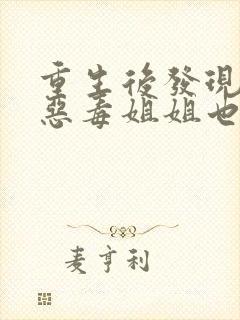 重生後發現
惡毒姐姐也
麦亨利